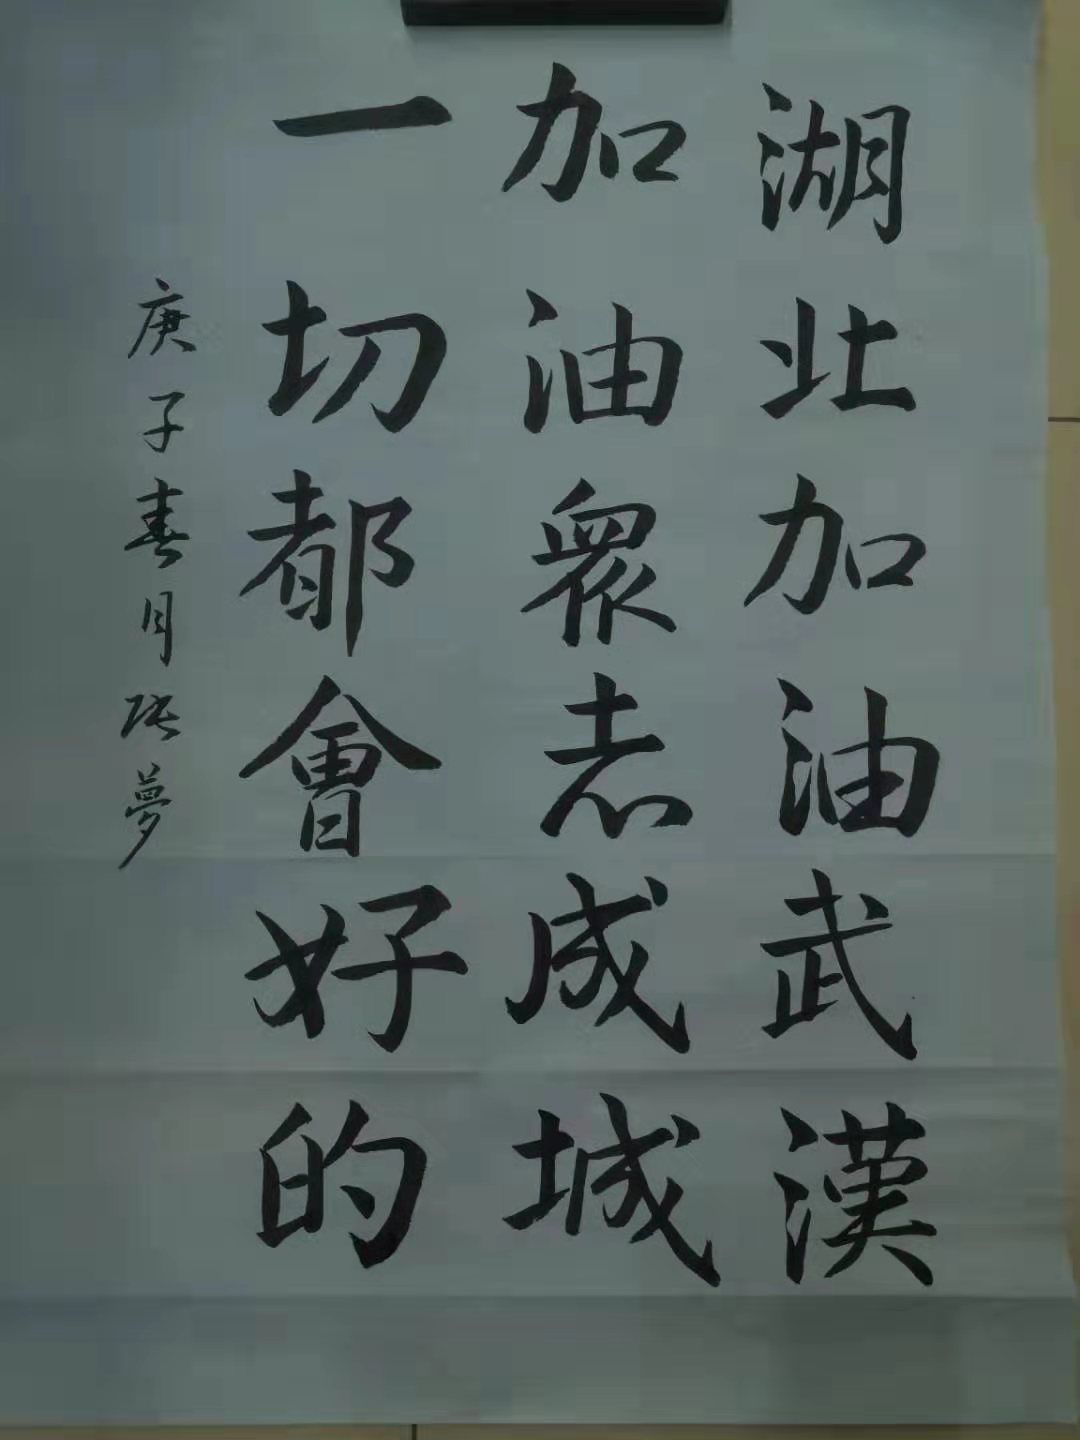 湖北加油武漢
加油眾志成城
一切都會好的
庚子春月張夢